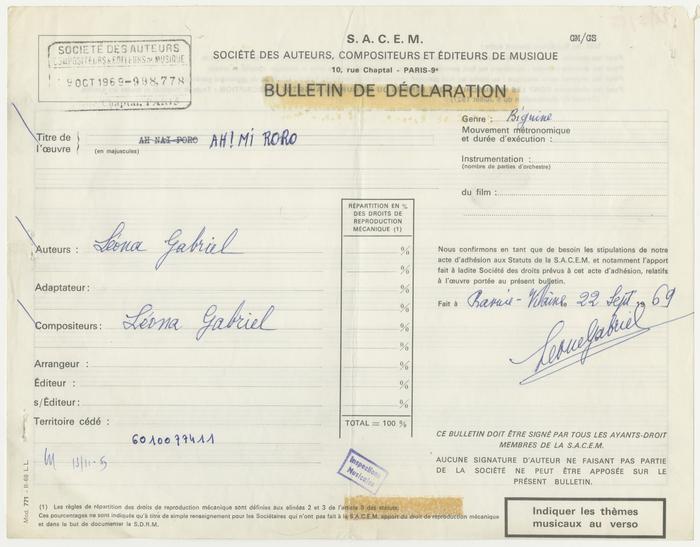 S.A.C.E.M.
GM/GS
SOCIÉTÉ DES AUTEURS, COMPOSITEURS ET ÉDITEURS DE MUSIQUE
10, rue Chaptal - PARIS-9e
BULLETIN DE DÉCLARATION
SOCIÉTÉ DES AUTEURS
COMPOSITEURS & EDITEURS DE MUSIQUE
9 OCT 1969 - 998.778
rue Chaptal, PARIS
Titre de l'œuvre
(en majuscules)
AH NAÏ PORO AH! MI RORO
Genre : Biguine
Mouvement métronomique
et durée d'exécution :
Instrumentation :
(nombre de parties d'orchestre)
du film :
RÉPARTITION EN %
DES DROITS DE
REPRODUCTION
MÉCANIQUE (1)
Auteurs : Léona Gabriel
%
%
Adaptateur :
%
%
Compositeurs : Léona Gabriel
%
%
Arrangeur :
%
Éditeur :
%
s/Éditeur :
%
Territoire cédé :
TOTAL = 100 %
6010077411
Nous confirmons en tant que de besoin les stipulations de notre
acte d'adhésion aux Statuts de la S.A.C.E.M. et notamment l'apport
fait à ladite Société des droits prévus à cet acte d'adhésion, relatifs
à l'œuvre portée au présent bulletin.
Fait à 22 Sept 1969
Leona Gabriel
CE BULLETIN DOIT ÊTRE SIGNÉ PAR TOUS LES AYANTS-DROIT
MEMBRES DE LA S.A.C.E.M.
AUCUNE SIGNATURE D'AUTEUR NE FAISANT PAS PARTIE
DE LA SOCIÉTÉ NE PEUT ÊTRE APPOSÉE SUR LE
PRÉSENT BULLETIN.
Inspections
Musicales
Mod. 771 - II-68 L.L.
(1) Les règles de répartition des droits de reproduction mécanique sont définies aux alinéas 2 et 3 de l'article 8 des statuts.
Ces pourcentages ne sont indiqués qu'à titre de simple renseignement pour les Sociétaires qui n'ont pas fait à la S.A.C.E.M. apport du droit de reproduction mécanique
et dans le but de documenter la S.D.R.M.
Indiquer les thèmes
musicaux au verso